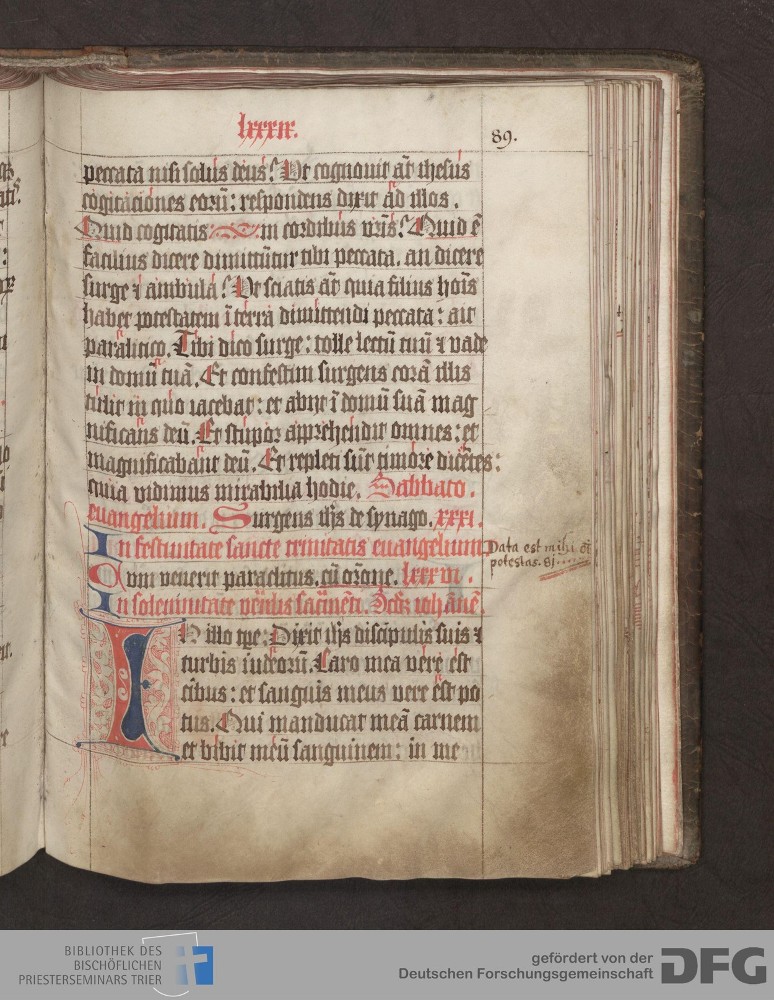 lxxxix.
89.
peccata nisi solus deus? Ut cognouit aūt ihesus
cogitaciones eorū: respondens dixit ad illos.
Quid cogitatis in cordibus vrīs? Quid ē
facilius dicere dimittūtur tibi peccata. an dicere
surge ⁊ ambula? Ut sciatis aūt quia filius hoīs
habet potestatem ī terra dimittendi peccata: ait
paralitico. Tibi dico surge: tolle lectū tuū ⁊ vade
in domū tuā. Et confestim surgens corā illis
tulit in quo iacebat: et abijt ī domū suā mag
nificans deū. Et stupor apprehendit omnes: et
magnificabant deū. Et repleti sūt timore dicētes:
quia vidimus mirabilia hodie. Sabbato.
euangelium. Surgens ihs de synago. xxxi.
In festiuitate sancte trinitatis euangelium.
Data est mihi
potestas.
Cvm venerit paraclitus. cū
In solemnitate
In illo tpe: Dixit ihs discipulis suis ⁊
turbis iudeorū. Caro mea vere est
cibus: et sanguis meus vere est po
tus. Qui manducat meā carnem
et bibit meū sanguinem: in me
BIBLIOTHEK DES
BISCHÖFLICHEN
PRIESTERSEMINARS TRIER
gefördert von der
Deutschen Forschungsgemeinschaft
DFG